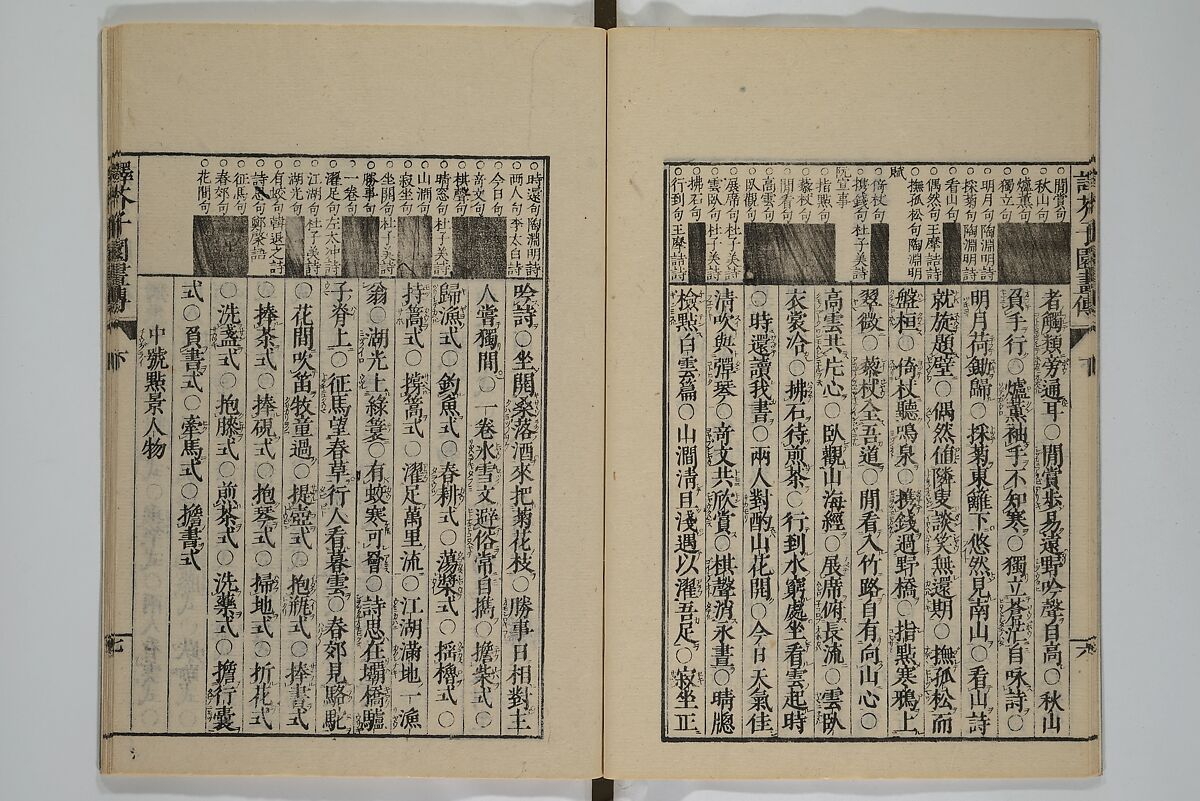 譯芥子園畫傳
○閒賞句
○秋山句
○爐薰句
○獨立句
○明月句陶淵明詩
○採菊句陶淵明詩
○看山句
○偶然句王摩詰詩
○撫孤松句陶淵明
賦
○倚杖句
○攜錢句杜子美詩
阮宣事
○指點句
○藜杖句
○閒看句
○高雲句
○臥觀句
○展席句杜子美詩
○雲臥句杜子美詩
○拂石句
○行到句王摩詰詩
者觸類旁通耳○閒賞步易遠野吟聲自高○秋山
負手行○爐薰袖手不知寒○獨立蒼茫自咏詩○
明月荷鋤歸○採菊東籬下悠然見南山○看山詩
就旋題壁○偶然值隣叟談笑無還期○撫孤松而
盤桓○倚杖聽鳴泉○攜錢過野橋○指點寒鴉上
翠微○藜杖全吾道○閒看入竹路自有向山心○
高雲共片心○臥觀山海經○展席俯長流○雲臥
衣裳冷○拂石待煎茶○行到水窮處坐看雲起時
○時還讀我書○兩人對酌山花開○今日天氣佳
清吹與彈琴○奇文共欣賞○棋聲消永晝○晴牕
檢點白雲篇○山澗淸且淺遇以濯吾足○寂坐正
六
○時還句陶淵明詩
○兩人句李太白詩
○今日句
○奇文句
○棋聲句
○晴窓句杜子美詩
○山澗句
○寂坐句
○坐開句杜子美詩
○勝事句
○一卷句
○濯足句左太冲詩
○江湖句杜子美詩
○湖光句
○有蛟句韓退之詩
○詩思句鄭綮語
○征馬句
○春郊句
○花間句
吟詩○坐開桑落酒來把菊花枝○勝事日相對主
人嘗獨閒○一卷氷雪文避俗常自攜○擔柴式○
歸漁式○釣魚式○春耕式○蕩槳式○搖櫓式○
持篙式○撐篙式○濯足萬里流○江湖滿地一漁
翁○湖光上綠簑○有蛟寒可罾○詩思在壩橋驢
子脊上○征馬望春草行人看暮雲○春郊見駱駝
○花間吹笛牧童過○提壺式○抱瓶式○捧書式
○捧茶式○捧硯式○抱琴式○掃地式○折花式
○洗盞式○抱膝式○煎茶式○洗藥式○擔行囊
式○負書式○牽馬式○擔書式
中號點景人物
譯芥子園畫傳
七